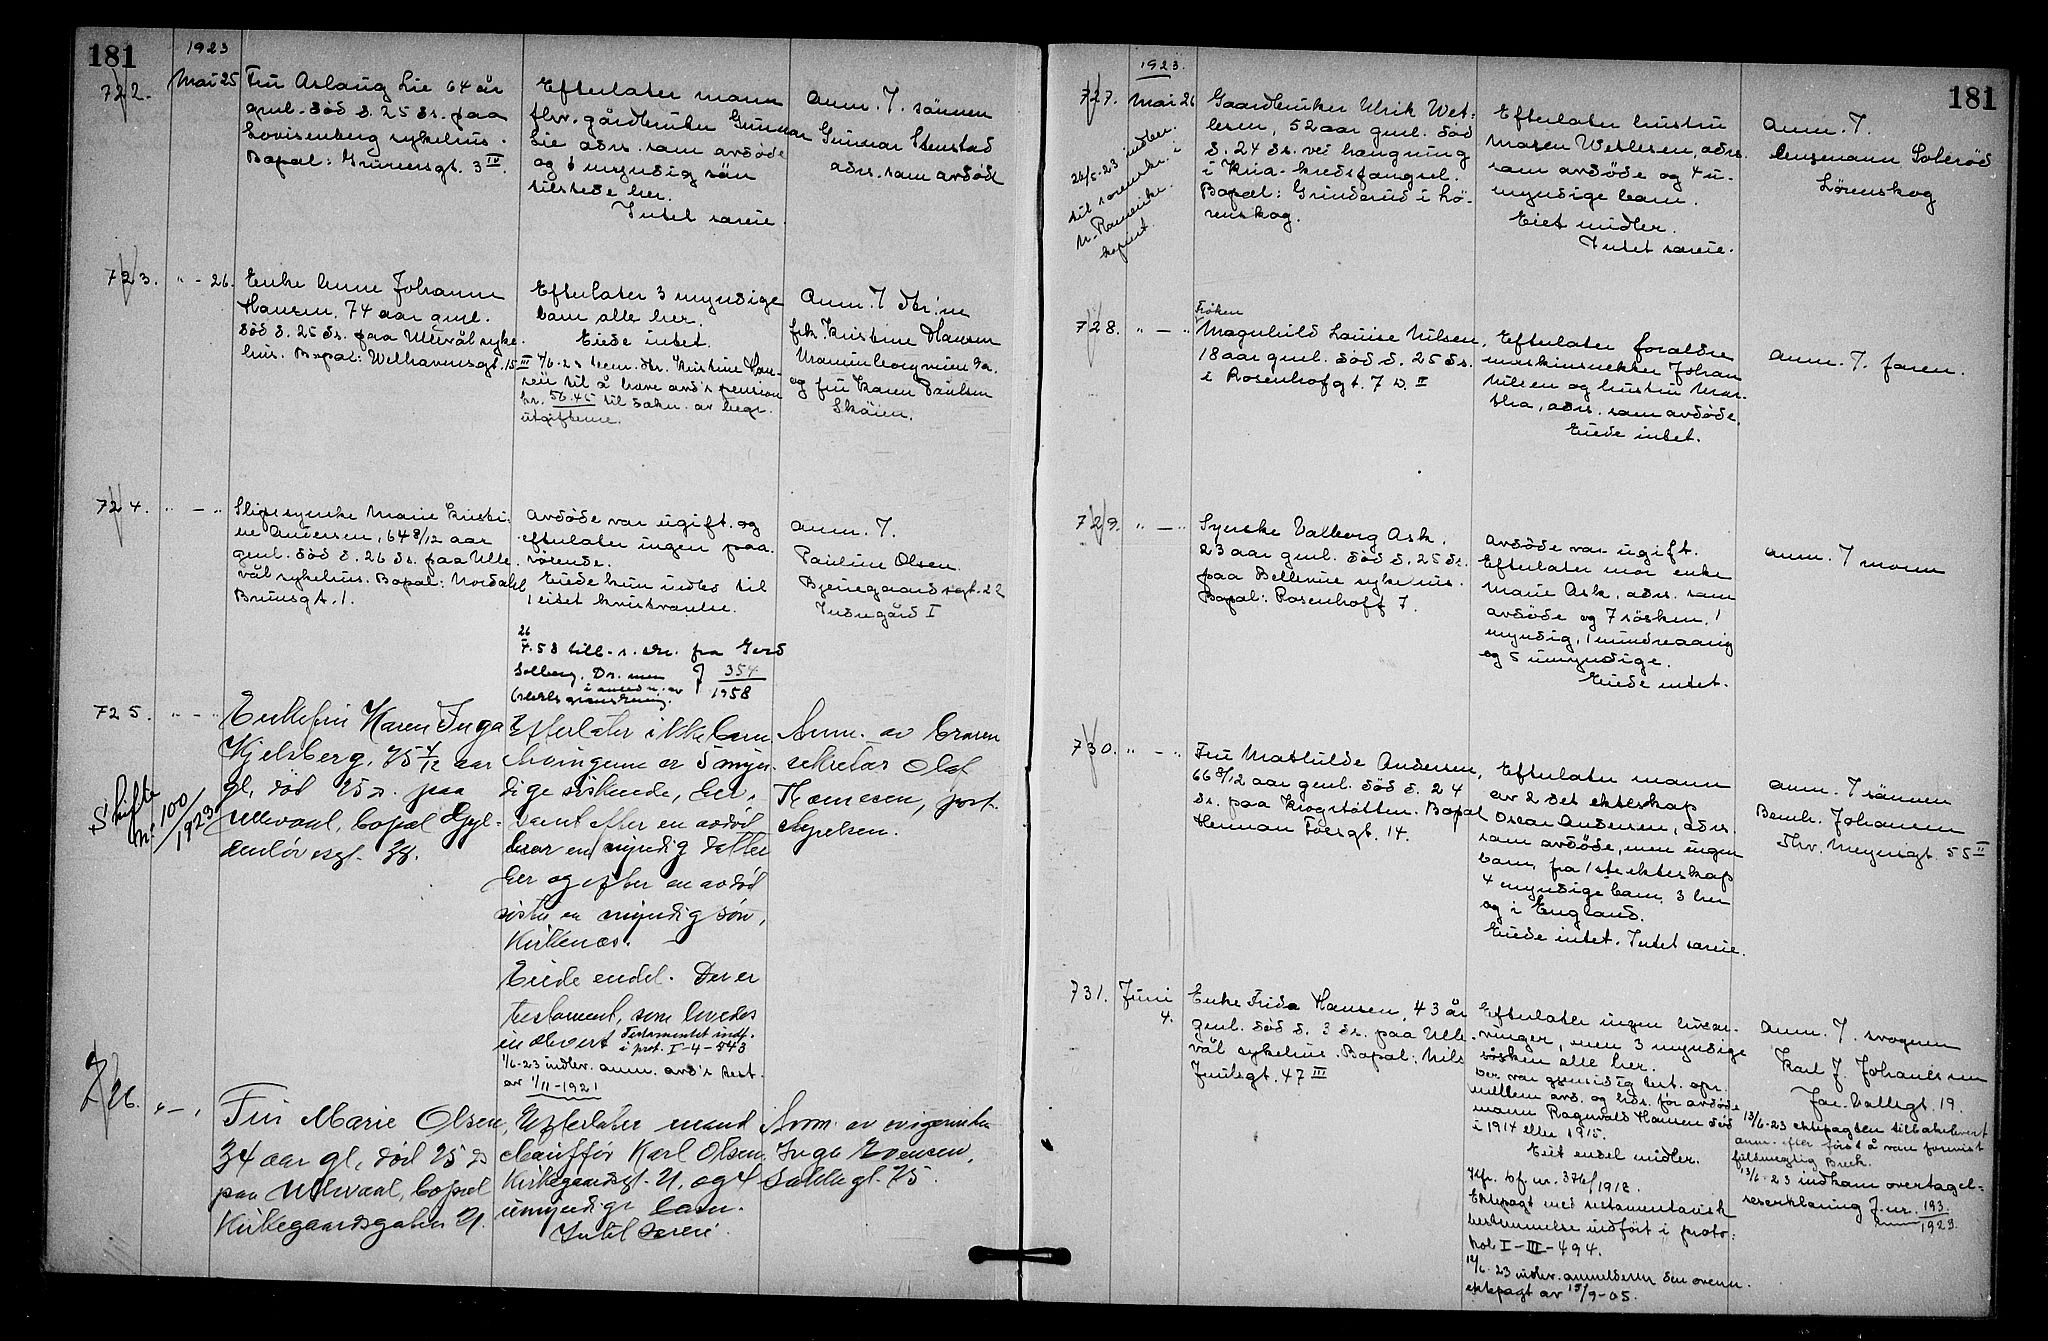 181
1923
722.
Mai 25
Fru Aslaug Lie 64 år
gml. död d. 25 ds. paa
Lovisenberg sykehus.
Bopæl: Grünersgt. 3 IV.
Efterlater mann
fhv. gårdbruker Gunnar
Lie adrs. som avdöde
og 1 myndig sön
tilstede her.
Intet særeie.
Anm. J. sönnen
Gunnar Stenstad
adrs. som avdöde
723.
" - 26.
Enke Anne Johanne
Hansen, 74 aar gml.
död d. 25 ds. paa Ullevål syke-
hus. Bopæl: Welhavensgt. 15 III
Efterlater 3 myndige
barn alle her.
Eiede intet.
7/6-23 bem. dtr. Kristine Han-
sen til å heve avd's pension
kr. 56.45 til dækn. av begr.
utgifterne.
Anm. J dtr:ne
frk. Kristine Hansen
og fru Karen Paulsen
Sköien.
724.
" - "
Sykepleierske Marie Kristi-
ne Andersen, 64 8/12 aar
gml. död d. 26 ds. paa Ulle-
vål sykehus. Bopæl: Nordahl
Brunsgt. 1.
Avdöde var ugift og
efterlater ingen paa-
rörende.
Eiede kun indbo til
litet
Anm. J.
Pauline Olsen.
Bjerregaardsgt. 22
Indregård I
26/4.58 till. s. skr. fra Gerd
Solberg. Dr.men
i anledn. av
J 354/1958
725.
" - "
Skifte
nr. 100/1923
Enkefru Karen Inga
Kjelsberg, 75 4/12 aar
gl, död 25 ds. paa
Ullevaal, bopæl Gyl-
denlövesgt. 38.
Efterlater ikke barn
Arvingerne er 5 myn-
dige söskende, her,
samt efter en avdöd
bror en myndig datter
her og efter en avdöd
söster en myndig sön,
Kirkenes.
Eiede endel. Der er
testament, som loves
indlevert Testamentet indf.
i prot. I-4-543
1/6-23 indlev. anm. avd's test.
av 1/11-1921
Anm. av
sekretær Olaf
Thomesen, post
styrelsen.
726.
" - "
Fru Marie Olsen,
34 aar gl, död 25 ds
paa Ullevaal, bopæl
Kirkegaardsgaten 21.
Efterlater mand
chaufför Karl Olsen,
Kirkegaardsgt. 21, og 4
umyndige barn.
Intet særeie.
Anm. av svigerinden
Inga Evensen,
gt. 25.
181
1923.
727.
Mai 26
26/5-23 indber.
til sorenskr. i
N. Romerike
Gaardbruker Ulrik Wet-
lesen, 52 aar gml. död
d. 24 ds. ved hængning
i Kria. kredsfængsel.
Bopæl: Grinderud i Lö-
renskog.
Efterlater hustru
Maren Wetlesen, adrs.
som avdöde og 4 u-
myndige barn.
Eiet midler.
Intet særeie.
Anm. J.
lensmann Soleröd
Lörenskog
728.
" - "
Fröken
Magnhild Louise Nilsen,
18 aar gml. död d. 25 ds.
i Rosenhofgt. 7 D. II
Efterlater forældre
maskinsnekker Johan
Nilsen og hustru Mar-
tha, adrs. som avdöde.
Eiede intet.
Anm. J. faren.
729.
" - "
Syerske Valborg Ask.
23 aar gml. död d. 25 ds.
paa Bellevue sykehus.
Bopæl: Rosenhoff 7.
Avdöde var ugift.
Efterlater mor enke
Marie Ask, adrs. som
avdöde og 7 sösken, 1
myndig, 1 mindreaarig
og 5 umyndige.
Eiede intet.
Anm. J moren
730.
" - "
Fru Mathilde Andersen,
66 8/12 aar gml. död d. 24
ds. paa Krogstötten. Bopæl
Herman Fossgt. 14.
Efterlater mann
av 2det ekteskap
Oscar Andersen, adrs.
som avdöde, men ingen
barn, fra 1ste ekteskap
4 myndige barn, 3 her
og i England.
Eiede intet. Intet særeie.
Anm. J sönnen
Bernh. Johansen
Thv. Meyersgt. 55 II
731.
Juni
4.
Enke Frida Hansen, 43 år
gml. död d. 3 ds. paa Ulle-
vål sykehus. Bopæl: Nils
Juulsgt. 47 III
Efterlater ingen livsar-
vinger, men 3 myndige
sösken alle her.
Der var gjensidig test. opr.
mellem avd. og hds. för avdöde
mann Ragnvald Hansen död
i 1914 eller 1915.
Eiet endel midler.
Jfr. bf. nr. 376/1918.
Ektepagt med testamentarisk
bestemmelse indfört i proto-
kol I-III-494.
12/6-23 indlev. anmelderen den ovenn.
ektepagt av 15/9-05.
Anm. J. svogeren
Karl J. Johansen
Jac. Aallsgt. 19.
13/6-23 ektepagten tilbakelevert
anm. efter först å være forevist
fuldmegtig Beck.
13/6-23 indkom overtagel-
seserklæring J.nr. 193/1923.